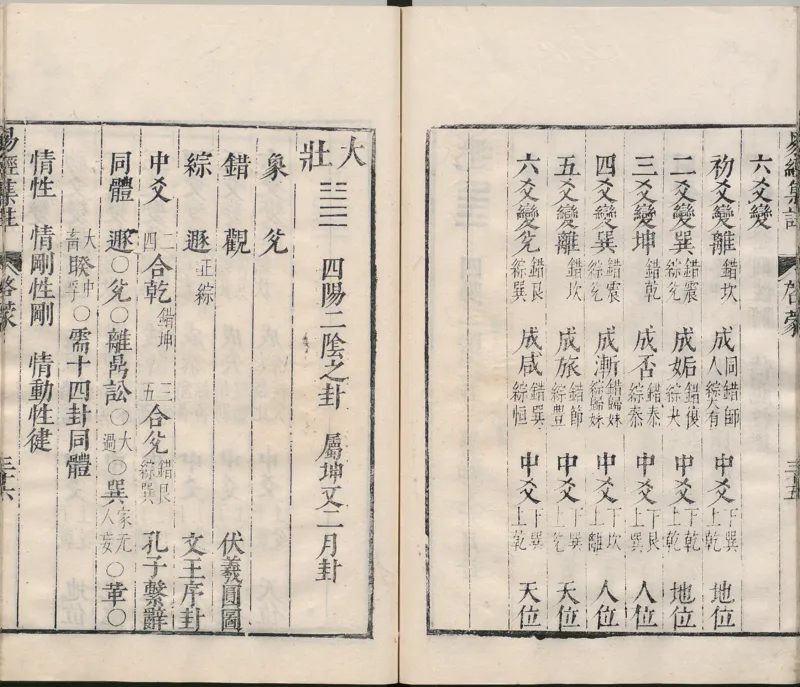 六爻變
初爻變離 錯坎 成同人 錯師綜大有 中爻 下巽上乾 地位
二爻變巽 錯震綜兌 成姤 錯復綜夬 中爻 下乾上乾 地位
三爻變坤 錯乾 成否 錯泰綜泰 中爻 下艮上巽 人位
四爻變巽 錯震綜兌 成漸 錯歸妹綜歸妹 中爻 下坎上離 人位
五爻變離 錯坎 成旅 錯節綜豐 中爻 下巽上兌 天位
六爻變兌 錯艮綜巽 成咸 錯巽綜恒 中爻 下巽上乾 天位
易經集註 啓蒙 三十五
大壯 ䷡ 四陽二陰之卦 屬坤又二月卦
象兌
錯觀 伏羲圓圖
綜遯 正綜 文王序卦
中爻 二四合乾 錯坤 三五合兌 錯艮綜巽 孔子繫辭
同體 遯○兌○離鼎訟○大過○巽家人无妄○革○
大畜睽中孚○需十四卦同體
情性 情剛性剛 情動性健
易經集註 啓蒙 三十六